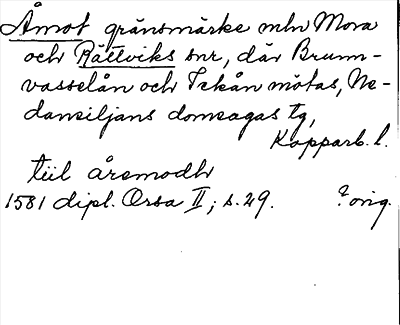 Åmot gränsmärke mln Mora
och Rättviks snr, där Brunn-
vasselån och Ickån mötas, Ne-
dansiljans domsagas tg,
Kopparb. l.
tiil åremodh
1581 dipl. Orsa II; s. 29. ? orig.